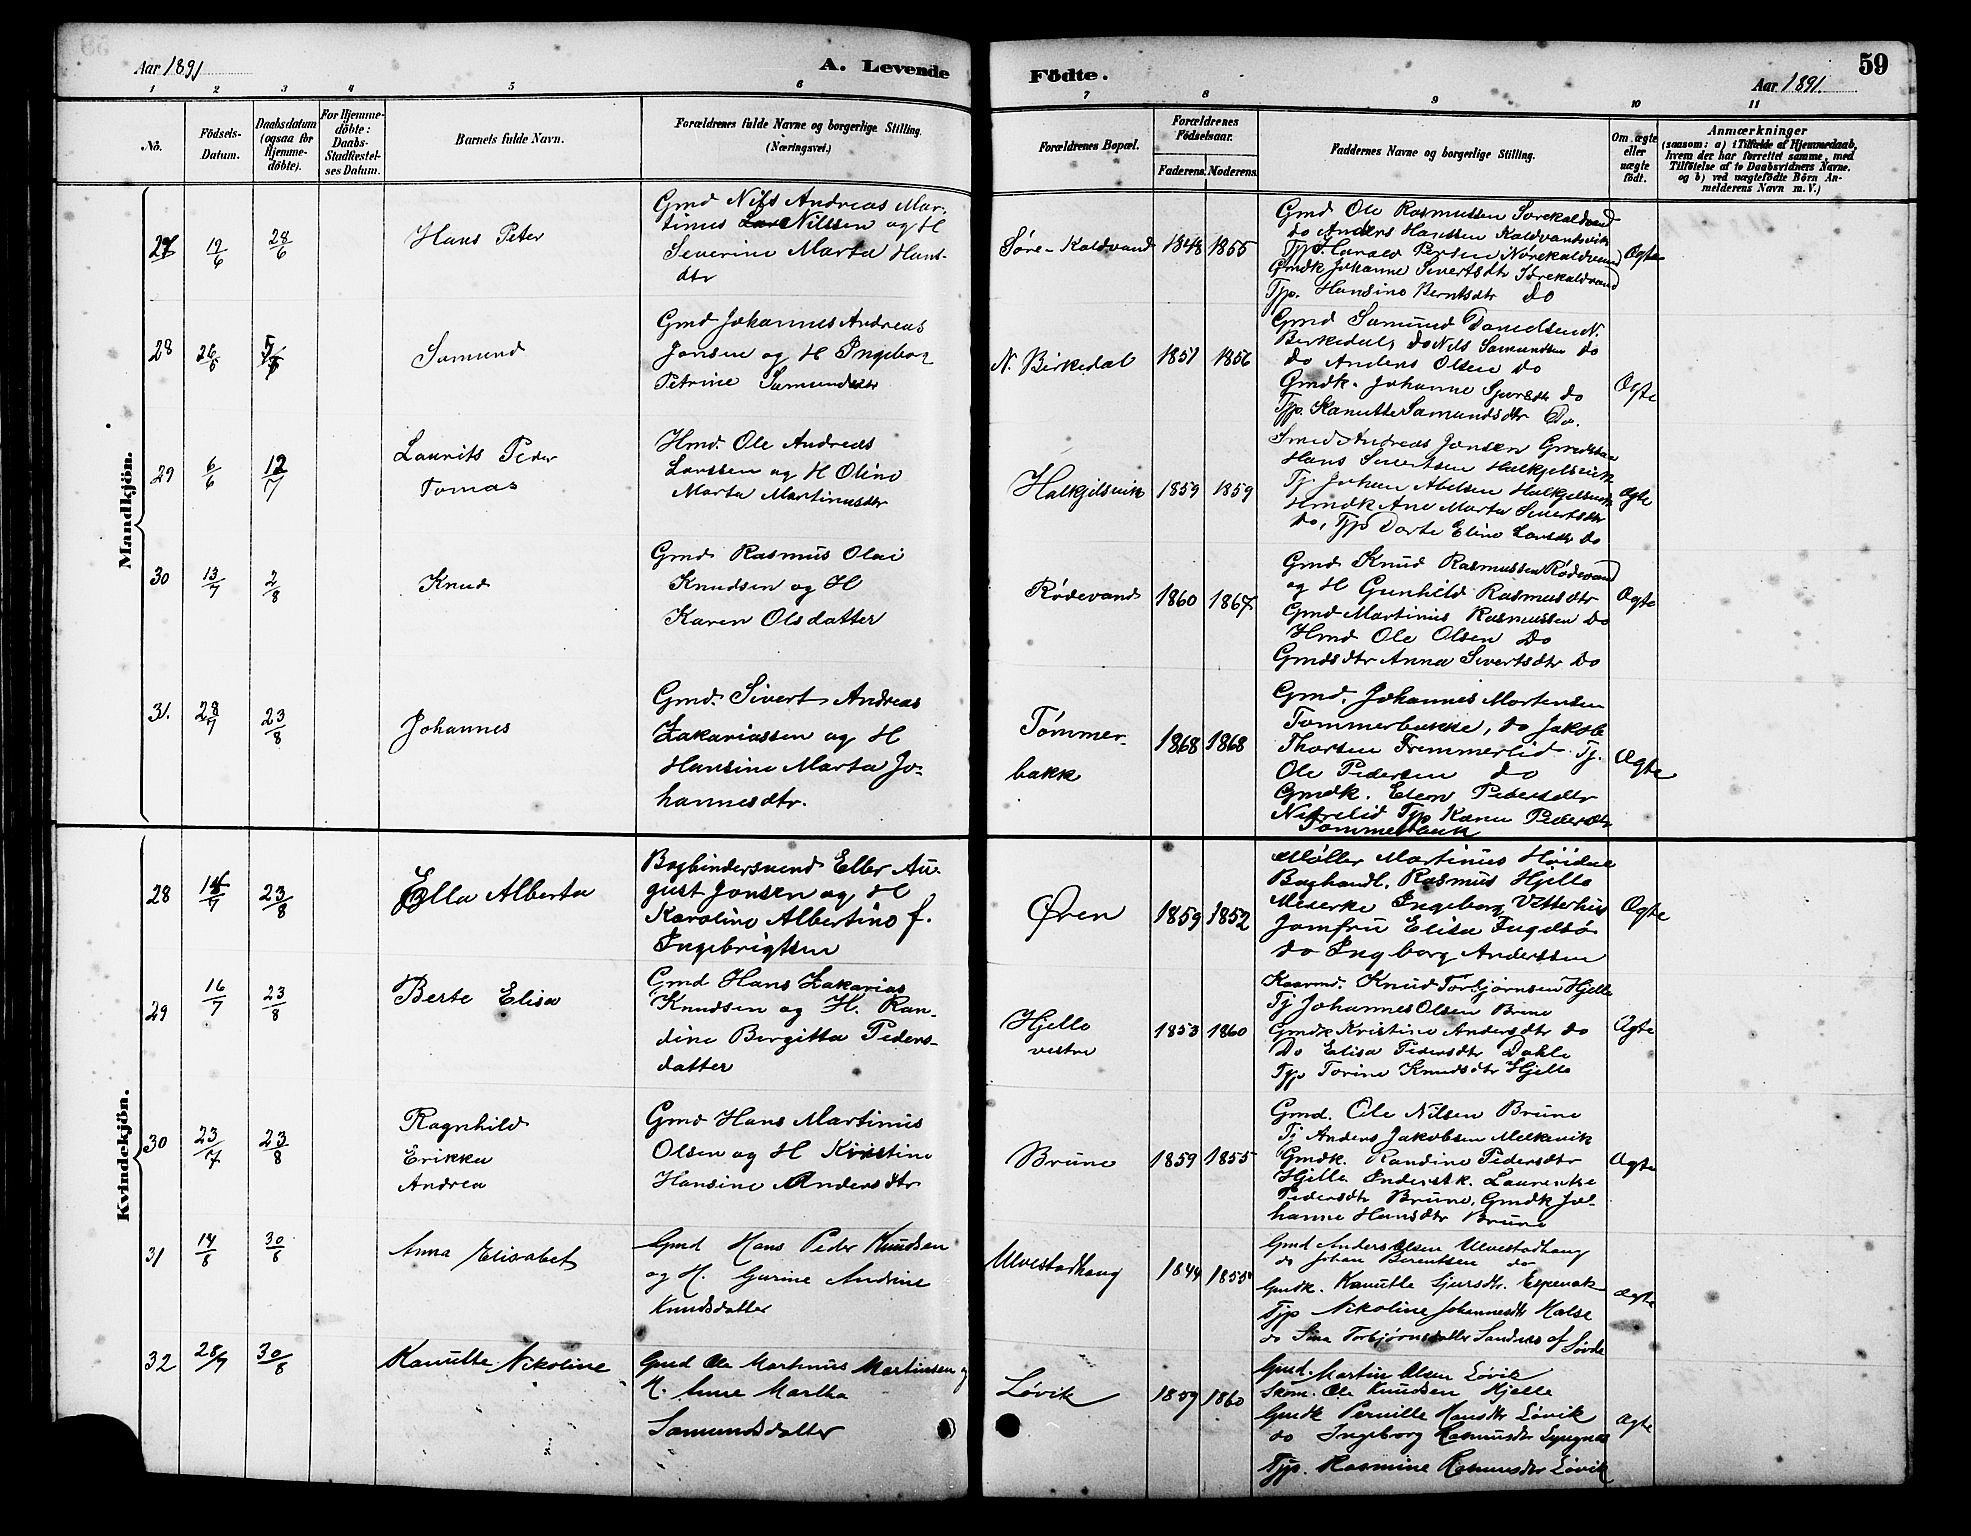 Aar 1891
A. Levende
Födte.
Aar 1891.
59
1 2 3 4 5 6 7 8 9 10 11
No.
Födsels-
Datum.
Daabsdatum
(ogsaa for
Hjemme-
döbte).
For Hjemme-
döbte:
Daabs-
Stadfæstel-
ses Datum.
Barnets fulde Navn.
Forældrenes fulde Navne og borgerlige Stilling.
(Næringsvei.)
Forældrenes Bopæl.
Forældrenes
Födselsaar.
Faderens. Moderens.
Faddernes Navne og borgerlige Stilling.
Om ægte
eller
uægte
födt.
Anmærkninger
(saasom: a) i Tilfælde af Hjemmedaab,
hvem der har forrettet samme, med
Tilföielse af to Daabsvidners Navne.
og b) ved uægtefödte Börn An-
melderens Navn m. V.)
Mandkjön.
27 12/6 28/6
Hans Peter
Gmd Nils Andreas Mar-
tinus Nilssen og H
Severine Marta Hans-
dtr
Søre-Kaldvand 1848 1855
Gmd Ole Rasmussen Sørekaldvand
do Anders Hanssen Kaldvandsvik
Nørekaldvand
Gmdk Johanne Sivertsdtr Sørekaldvand
Typ. Hansine Berntsdtr do
Ægte
28 26/6
Samund
Gmd Johannes Andreas
Jonsen og H Ingebor
Petrine Samundsdtr
N. Birkedal 1851 1856
Gmd Samund Danielsen N.
Birkedal, do Nils Samundsen do
do Anders Olsen do
Gmdk. Johanne Sjursdtr do
Typ. Kanutte Samundsdtr do.
Ægte
29 6/6 12/7
Laurits Peder
Tomas
Hmd. Ole Andreas
Larssen og H Oline
Marta Martinusdtr
Halkjelsvik 1859 1859
Smed Andreas Jonsen
Hans Sivertsen Halkjelsvik
Tj. Johan Abelsen Halkjelsvik
Hmdk Ane Marta Sivertsdtr
do, Typ Dorte Eline Larsdtr do
Ægte
30 13/7 2/8
Knud
Gmd Rasmus Olai
Knudsen og H
Karen Olsdatter
Rødevand 1860 1867
Gmd Knud Rasmussen Rødevand
og H Gunhild Rasmusdtr
Gmd Martinus Rasmussen do
Hmd Ole Olsen do
Gmdsdtr Anna Sivertsdtr do
Ægte
31. 28/7 23/8
Johannes
Gmd. Sivert Andreas
Zakariassen og H
Hansine Marta Jo-
hannesdtr.
Tømmer-
bakk 1868 1868
Gmd. Johannes Mortensen
Tømmerbakke, do Jakob
Thorsen Fremmerlid Tj.
Ole Pedersen do
Gmdk. Elen Pedersdtr
Nedrelid Typ Karen Pedersdtr
Tømmerbakk
Ægte
Kvindekjön.
28 14/7 23/8
Ella Alberta
Bogbindersvend Eller Au-
gust Jonsen og H
Karoline Albertine f.
Ingebrigtsen
Øren 1859 1852
Møller Martinus Høidal
Boghandl. Rasmus Hjelle
Meierke Ingeborg Vatterhus
Jomfru Elisa Engelsø
do Ingborg Anderssen
Ægte
29 16/7 23/8
Berte Elisa
Gmd Hans Zakarias
Knudsen og H. Ran-
dine Birgitta Peders-
datter
Hjelle
vestre 1853 1860
Kaarmd. Knud Torbjørnsen Hjelle
Tj Johannes Olsen Brune
Gmdk Kristine Andersdtr do
Do Elisa Pedersdtr Dahle
Typ Torine Knudsdtr Hjelle
Ægte
30 23/7 23/8
Ragnhild
Erikka
Andrea
Gmd Hans Martinus
Olsen og H Kristine
Hansine Andersdtr
Brune 1859 1855
Gmd. Ole Nilsen Brune
Tj Anders Jakobsen Melkevik
Gmdk. Randine Pedersdtr
Hjelle Inderstk. Laurentse
Pedersdtr Brune, Gmdk Jo-
hanne Hansdtr Brune
Ægte
31 14/8 30/8
Anna Elisabet
Gmd Hans Peder Knudsen
og H. Gurine Andrine
Knudsdatter
Ulvestadhaug 1844 1855
Gmd Anders Olsen Ulvestadhaug
do Johan Berentsen do
Gmdk. Kanutte Sjursdtr. Espenak
Typ Nikoline Johannesdtr Halse
do Sina Torbjørnsdatter Sandnes af Søvde
Ægte
32 28/7 30/8
Kanutte Nikoline
Gmd Ole Martinus Martinsen og
H. Anne Martha
Samundsdatter
Løvik 1859 1860
Gmd. Martin Olsen Løvik
Skom. Ole Knudsen Hjelle
Gmdk Pernille Hansdtr Løvik
do Ingeborg Rasmusdtr Lyngnes
Typ. Rasmine Rasmusdtr Løvik
Ægte